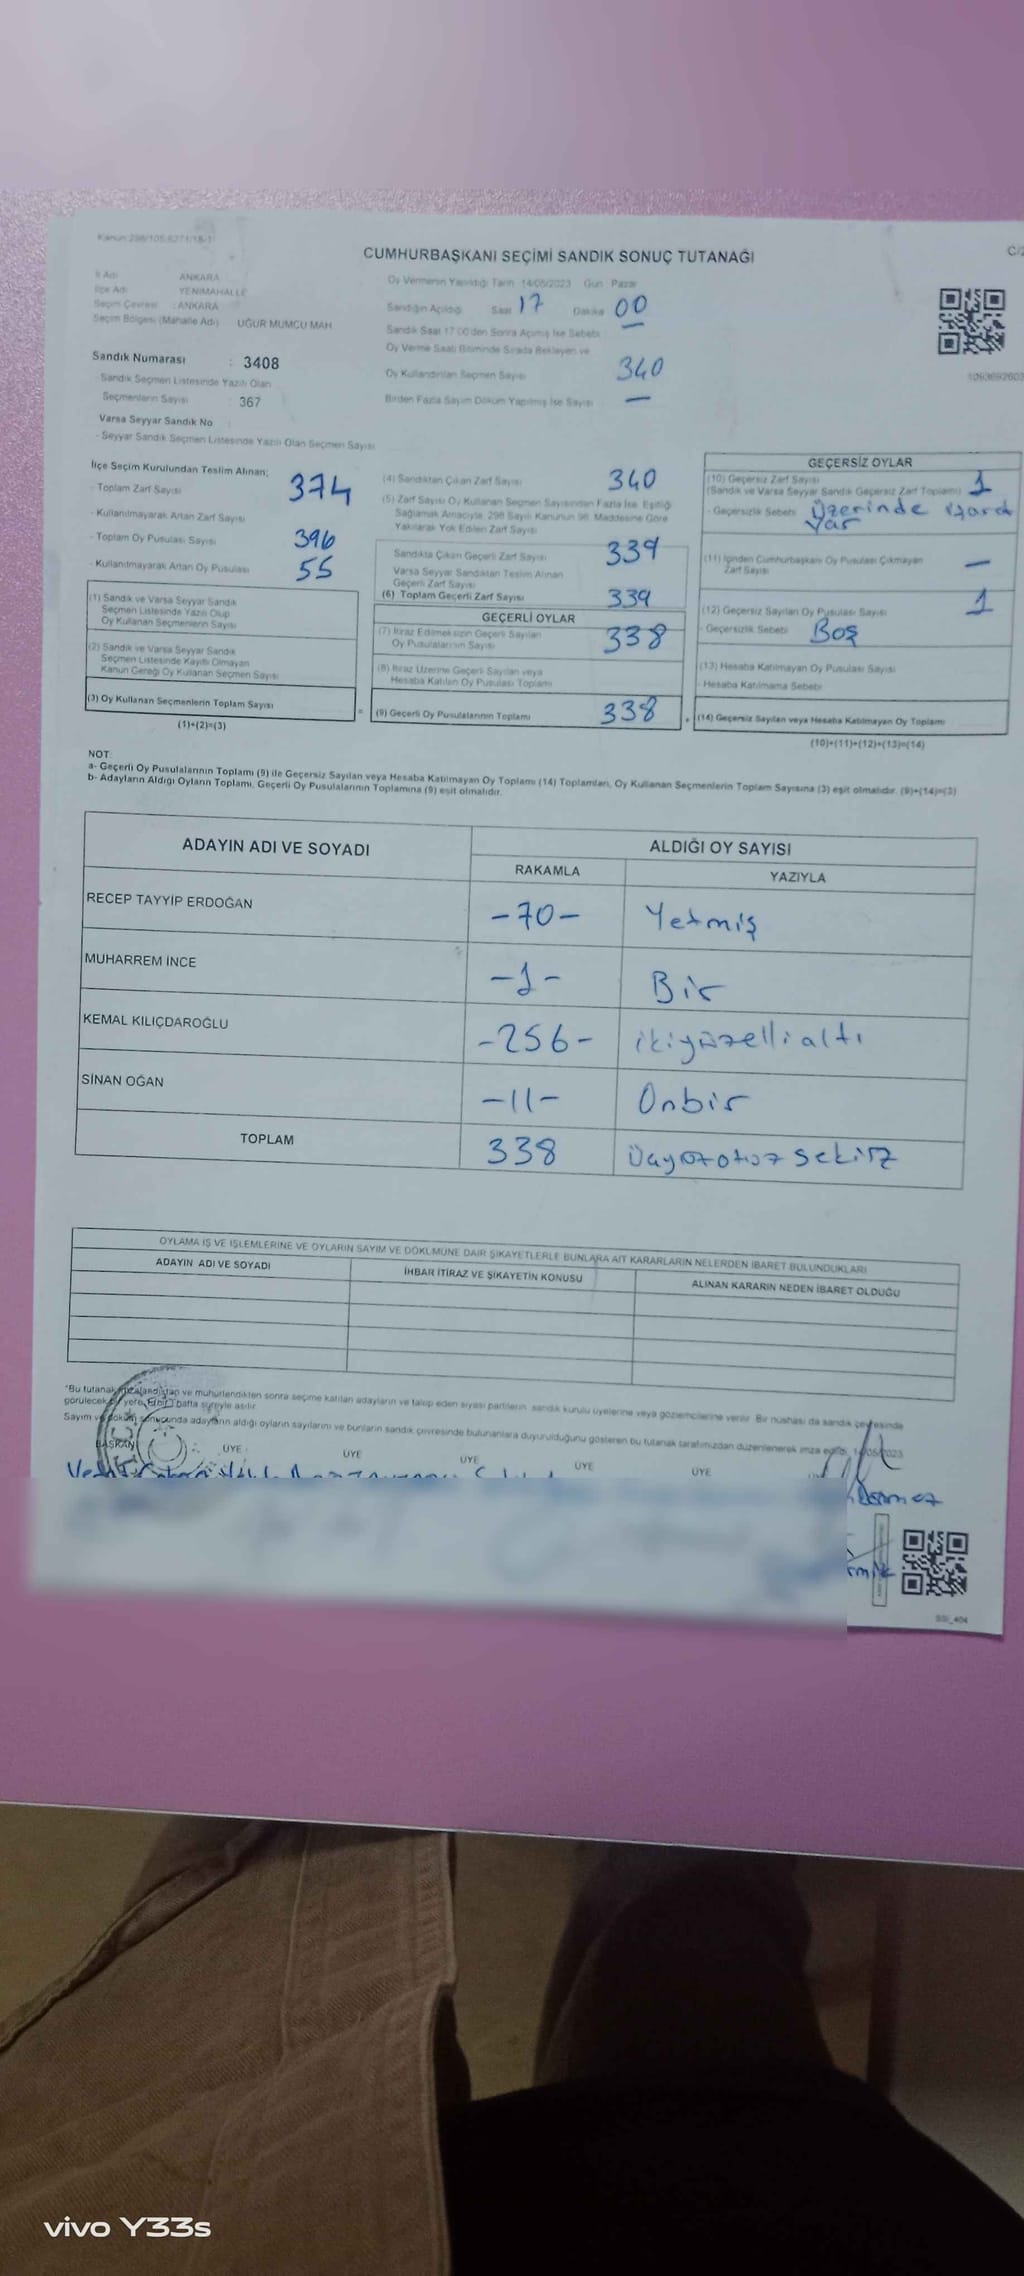 CUMHURBAŞKANI SEÇİMİ SANDIK SONUÇ TUTANAĞI
C/2
İl Adı : ANKARA
İlçe Adı : YENİMAHALLE
Seçim Çevresi : ANKARA
Seçim Bölgesi (Mahalle Adı) : UĞUR MUMCU MAH.
Sandık Numarası : 3408
Sandık Seçmen Listesinde Yazılı Olan
Seçmenlerin Sayısı : 367
Varsa Seyyar Sandık No :
- Seyyar Sandık Seçmen Listesinde Yazılı Olan Seçmen Sayısı
Oy Vermenin Yapıldığı Tarih 14/05/2023 Gün Pazar
Sandığın Açıldığı Saat 17 Dakika 00
Sandık Saat 17:00'den Sonra Açılmış İse Sebebi : —
Oy Verme Saati Bitiminde Sırada Bekleyen ve
Oy Kullandırılan Seçmen Sayısı 340
Birden Fazla Sayım Döküm Yapılmış İse Sayısı : —
İlçe Seçim Kurulundan Teslim Alınan;
- Toplam Zarf Sayısı 374
- Kullanılmayarak Artan Zarf Sayısı
- Toplam Oy Pusulası Sayısı 396
- Kullanılmayarak Artan Oy Pusulası 55
(1) Sandık ve Varsa Seyyar Sandık
Seçmen Listesinde Yazılı Olup
Oy Kullanan Seçmenlerin Sayısı
(2) Sandık ve Varsa Seyyar Sandık
Seçmen Listesinde Kayıtlı Olmayan
Kanun Gereği Oy Kullanan Seçmen Sayısı
(3) Oy Kullanan Seçmenlerin Toplam Sayısı
(1)+(2)=(3)
(4) Sandıktan Çıkan Zarf Sayısı 340
(5) Zarf Sayısı Oy Kullanan Seçmen Sayısından Fazla İse, Eşitliği
Sağlamak Amacıyla, 298 Sayılı Kanunun 98. Maddesine Göre
Yakılarak Yok Edilen Zarf Sayısı
Sandıkta Çıkan Geçerli Zarf Sayısı 339
Varsa Seyyar Sandıktan Teslim Alınan
Geçerli Zarf Sayısı
(6) Toplam Geçerli Zarf Sayısı 339
GEÇERLİ OYLAR
(7) İtiraz Edilmeksizin Geçerli Sayılan
Oy Pusulalarının Sayısı 338
(8) İtiraz Üzerine Geçerli Sayılan veya
Hesaba Katılan Oy Pusulası Toplamı
= (9) Geçerli Oy Pusulalarının Toplamı 338
GEÇERSİZ OYLAR
(10) Geçersiz Zarf Sayısı 1
(Sandık ve Varsa Seyyar Sandık Geçersiz Zarf Toplamı)
- Geçersizlik Sebebi : üzerinde
var
(11) İçinden Cumhurbaşkanı Oy Pusulası Çıkmayan
Zarf Sayısı —
(12) Geçersiz Sayılan Oy Pusulası Sayısı 1
- Geçersizlik Sebebi : Boş
(13) Hesaba Katılmayan Oy Pusulası Sayısı
- Hesaba Katılmama Sebebi
+ (14) Geçersiz Sayılan veya Hesaba Katılmayan Oy Toplamı
(10)+(11)+(12)+(13)=(14)
NOT:
a- Geçerli Oy Pusulalarının Toplamı (9) ile Geçersiz Sayılan veya Hesaba Katılmayan Oy Toplamı (14) Toplamları, Oy Kullanan Seçmenlerin Toplam Sayısına (3) eşit olmalıdır. (9)+(14)=(3)
b- Adayların Aldığı Oyların Toplamı, Geçerli Oy Pusulalarının Toplamına (9) eşit olmalıdır.
ADAYIN ADI VE SOYADI ALDIĞI OY SAYISI
RAKAMLA YAZIYLA
RECEP TAYYİP ERDOĞAN -70- Yetmiş
MUHARREM İNCE -1- Bir
KEMAL KILIÇDAROĞLU -256- ikiyüzellialtı
SİNAN OĞAN -11- Onbir
TOPLAM 338 Üçyüzotuzsekiz
OYLAMA İŞ VE İŞLEMLERİNE VE OYLARIN SAYIM VE DÖKÜMÜNE DAİR ŞİKAYETLERLE BUNLARA AİT KARARLARIN NELERDEN İBARET BULUNDUKLARI
ADAYIN ADI VE SOYADI İHBAR İTİRAZ VE ŞİKAYETİN KONUSU ALINAN KARARIN NEDEN İBARET OLDUĞU
*Bu tutanak imzalandıktan ve mühürlendikten sonra seçime katılan adayların ve talep eden siyasi partilerin sandık kurulu üyelerine veya gözlemcilerine verilir. Bir nüshası da sandık çevresinde
görülecek bir yere, 1(bir) hafta süreyle asılır.
Sayım ve döküm sonucunda adayların aldığı oyların sayılarını ve bunların sandık çevresinde bulunanlara duyurulduğunu gösteren bu tutanak tarafımızdan düzenlenerek imza edildi. 14/05/2023
BAŞKAN ÜYE ÜYE ÜYE ÜYE ÜYE
SSİ_404
vivo Y33s